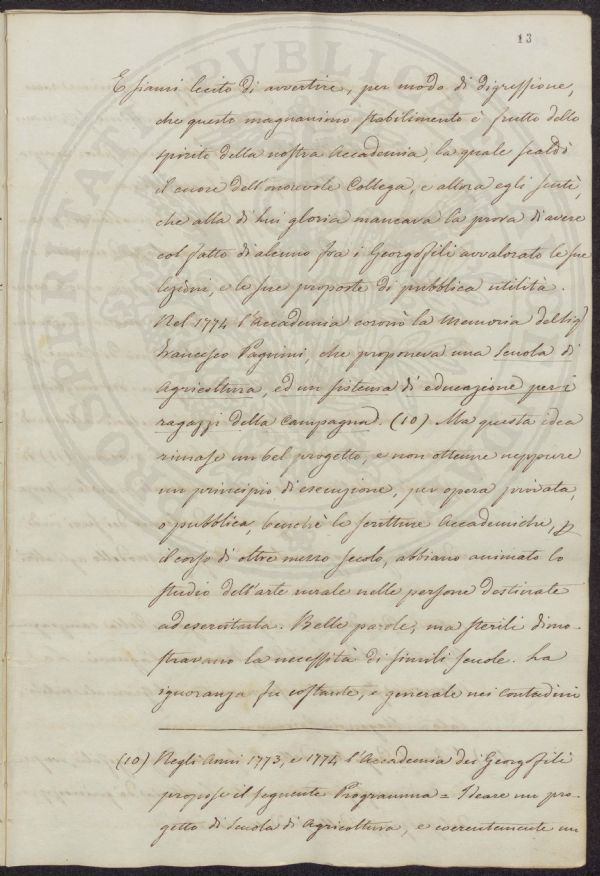 13
E siami lecito di avvertire, per modo di digressione,
che questo magnanimo stabilimento è frutto dello
spirito della nostra Accademia, la quale scaldò
il cuore dell'onorevole Collega, e allora egli sentì,
che alla di lui gloria mancava la prova di avere
col fatto di alcuno fra i Georgofili avvalorato le sue
lezioni, e le sue proposte di pubblica utilità.
Nel 1774 l'Accademia coronò la Memoria del Sig.r
Francesco Pagnini, che proponeva una Scuola di
Agricoltura, ed un sistema di educazione per i
ragazzi della Campagna. (10) Ma questa idea
rimase un bel progetto, e non ottenne neppure
un principio di esecuzione, per opera privata,
o pubblica, benchè le scritture Accademiche, p
il corso di oltre mezzo secolo, abbiano animato lo
studio dell'arte rurale nelle persone destinate
ad esercitarla. Belle parole, ma sterili dimo-
stravano la necessità di simili scuole. La
ignoranza fu costante, e generale nei contadini
(10) Negli Anni 1773, e 1774 l'Accademia dei Georgofili
propose il seguente Programma = Ideare un pro-
getto di Scuola di Agricoltura, e coerentemente un
PROSPERITATI PUBLICAE